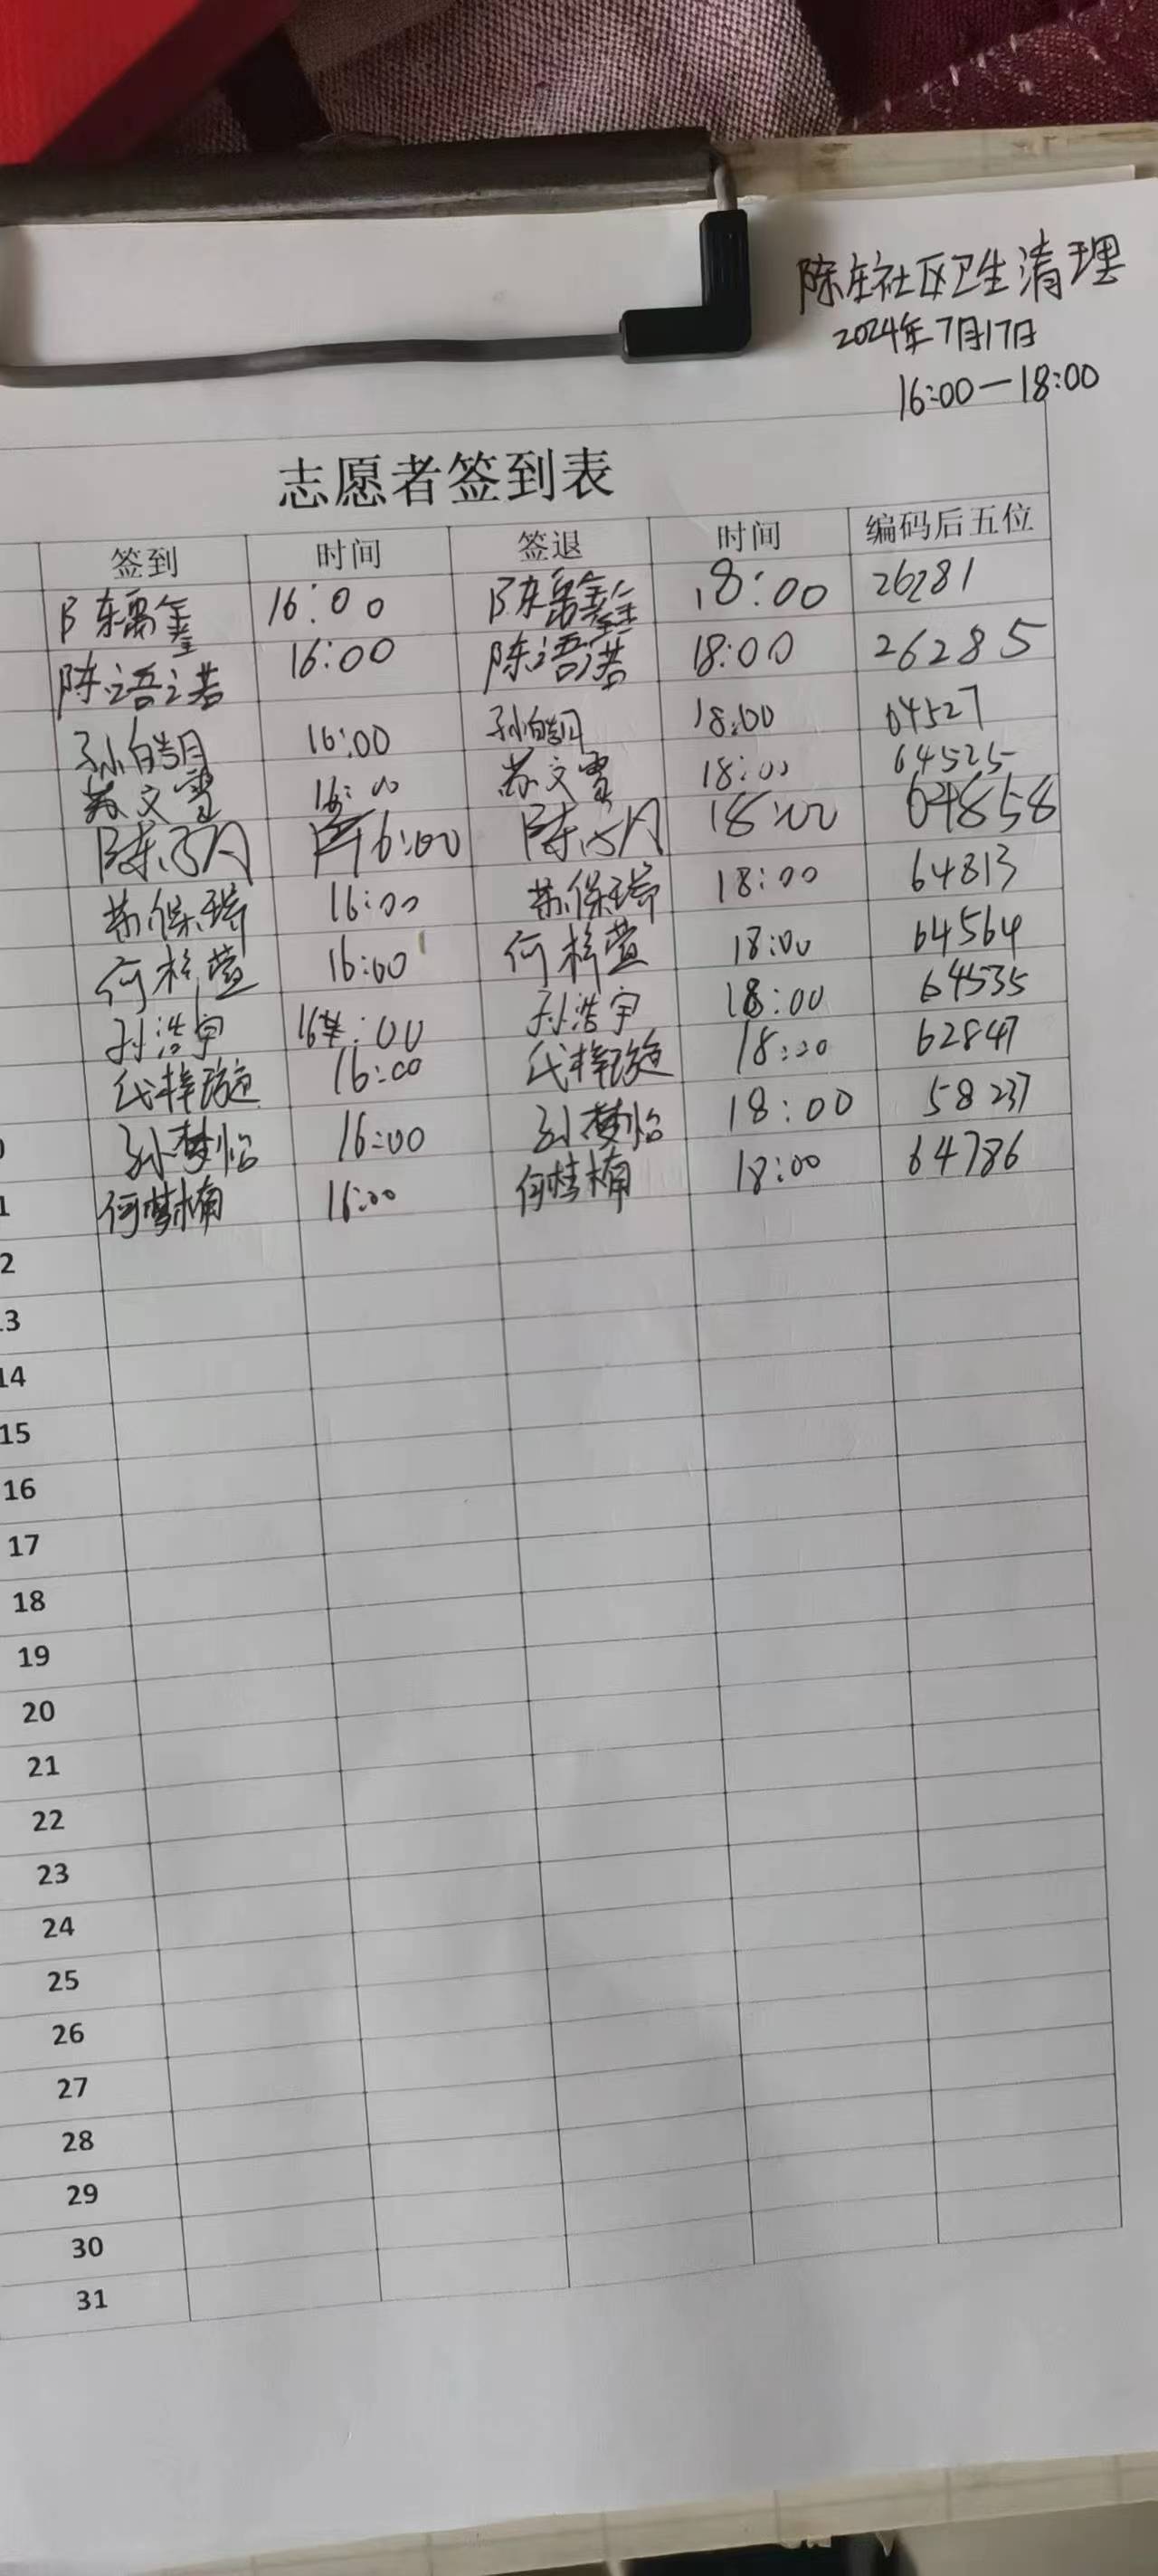 陈庄社区卫生清理
2024年7月17日
16:00—18:00
志愿者签到表
签到 时间 签退 时间 编码后五位
16:00 18:00 26281
陈语诺 16:00 陈语诺 18:00 26285
孙皓月 16:00 孙皓月 18:00 64527
苏文雪 16:00 苏文雪 18:00 64525
16:00 18:00 64858
苏保瑞 16:00 苏保瑞 18:00 64813
何梓萱 16:00 何梓萱 18:00 64564
孙浩宇 16:00 孙浩宇 18:00 64535
代梓璇 16:00 代梓璇 18:00 62847
0 孙梦怡 16:00 孙梦怡 18:00 58237
1 何梦楠 16:00 何梦楠 18:00 64786
2
13
14
15
16
17
18
19
20
21
22
23
24
25
26
27
28
29
30
31